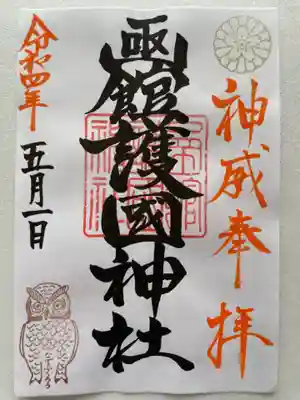 神威奉拝
函館護國神社
令和四年
五月一日